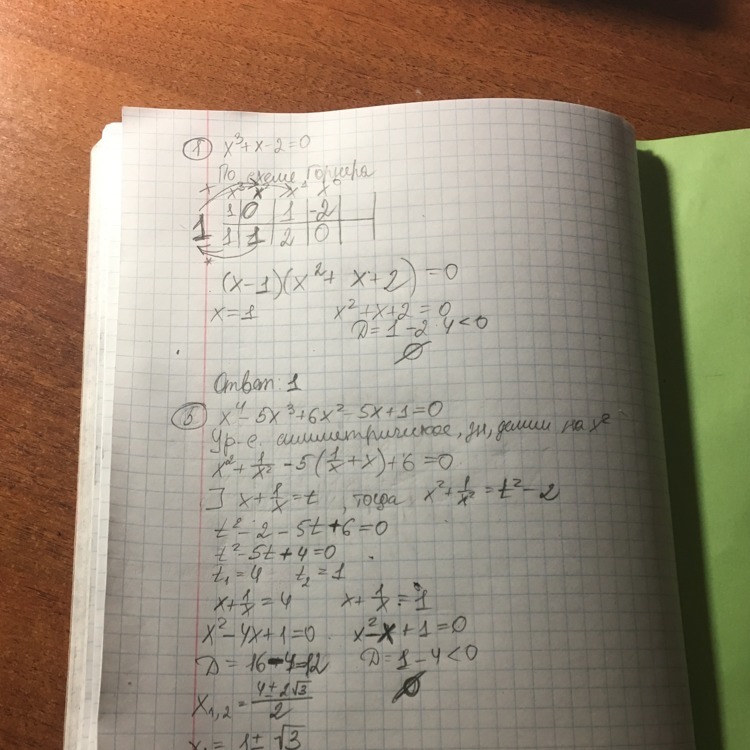 1 x³+x-2=0
По схеме Горнера
+ x³ x² x¹ x⁰
1 0 1 -2
1 1 1 2 0
*
(x-1)(x²+x+2)=0
x=1 x²+x+2=0
D=1-2·4<0
∅
Ответ: 1
5 x⁴-5x³+6x²-5x+1=0
Ур-е симметрическое, зн, делим на x²
x²+1/x²-5(1/x+x)+6=0
] x+1/x=t, тогда x²+1/x²=t²-2
t²-2-5t+6=0
t²-5t+4=0
t₁=4 t₂=1
x+1/x=4 x+1/x=1
x²-4x+1=0 x²-x+1=0
D=16-4=12 D=1-4<0
x₁,₂=(4±2√3)/2 ∅